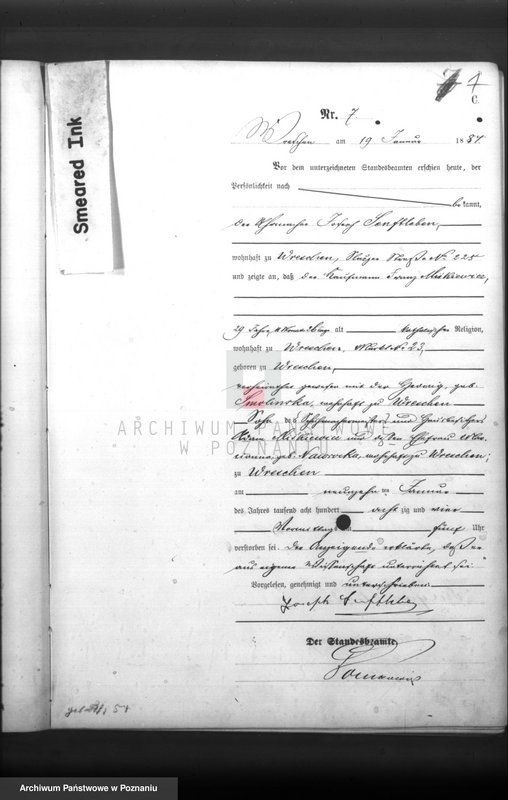 Smeared Ink
7 1
C.
Nr. 7.
Wreschen am 19 Januar 1884.
Vor dem unterzeichneten Standesbeamten erschien heute, der
Persönlichkeit nach
bekannt,
der Uhrmacher Joseph Senftleben,
wohnhaft zu Wreschen, Straße No. 225
und zeigte an, daß der Kaufmann Franz Miskiewicz,
29 Jahre, Monat Tage alt katholischer Religion,
wohnhaft zu Wreschen, Markt No 23,
geboren zu Wreschen,
verheirathet gewesen mit der Hedwig, geb.
Smolinska, wohnhaft zu Wreschen
Sohn des Schuhmachermeisters und Hausbesitzers
Miskiewicz und dessen Ehefrau
geb. Nawrocka, wohnhaft zu Wreschen;
zu Wreschen
am neunzehnten Januar
des Jahres tausend acht hundert achtzig und vier
Vormittags um fünf Uhr
verstorben sei. Der Anzeigende erklärte, daß er
aus eigener Wissenschaft unterrichtet sei.
Vorgelesen, genehmigt und unterschrieben
Joseph Senftleben
Der Standesbeamte.
ARCHIWUM PAŃSTWOWE
W POZNANIU
Archiwum Państwowe w Poznaniu